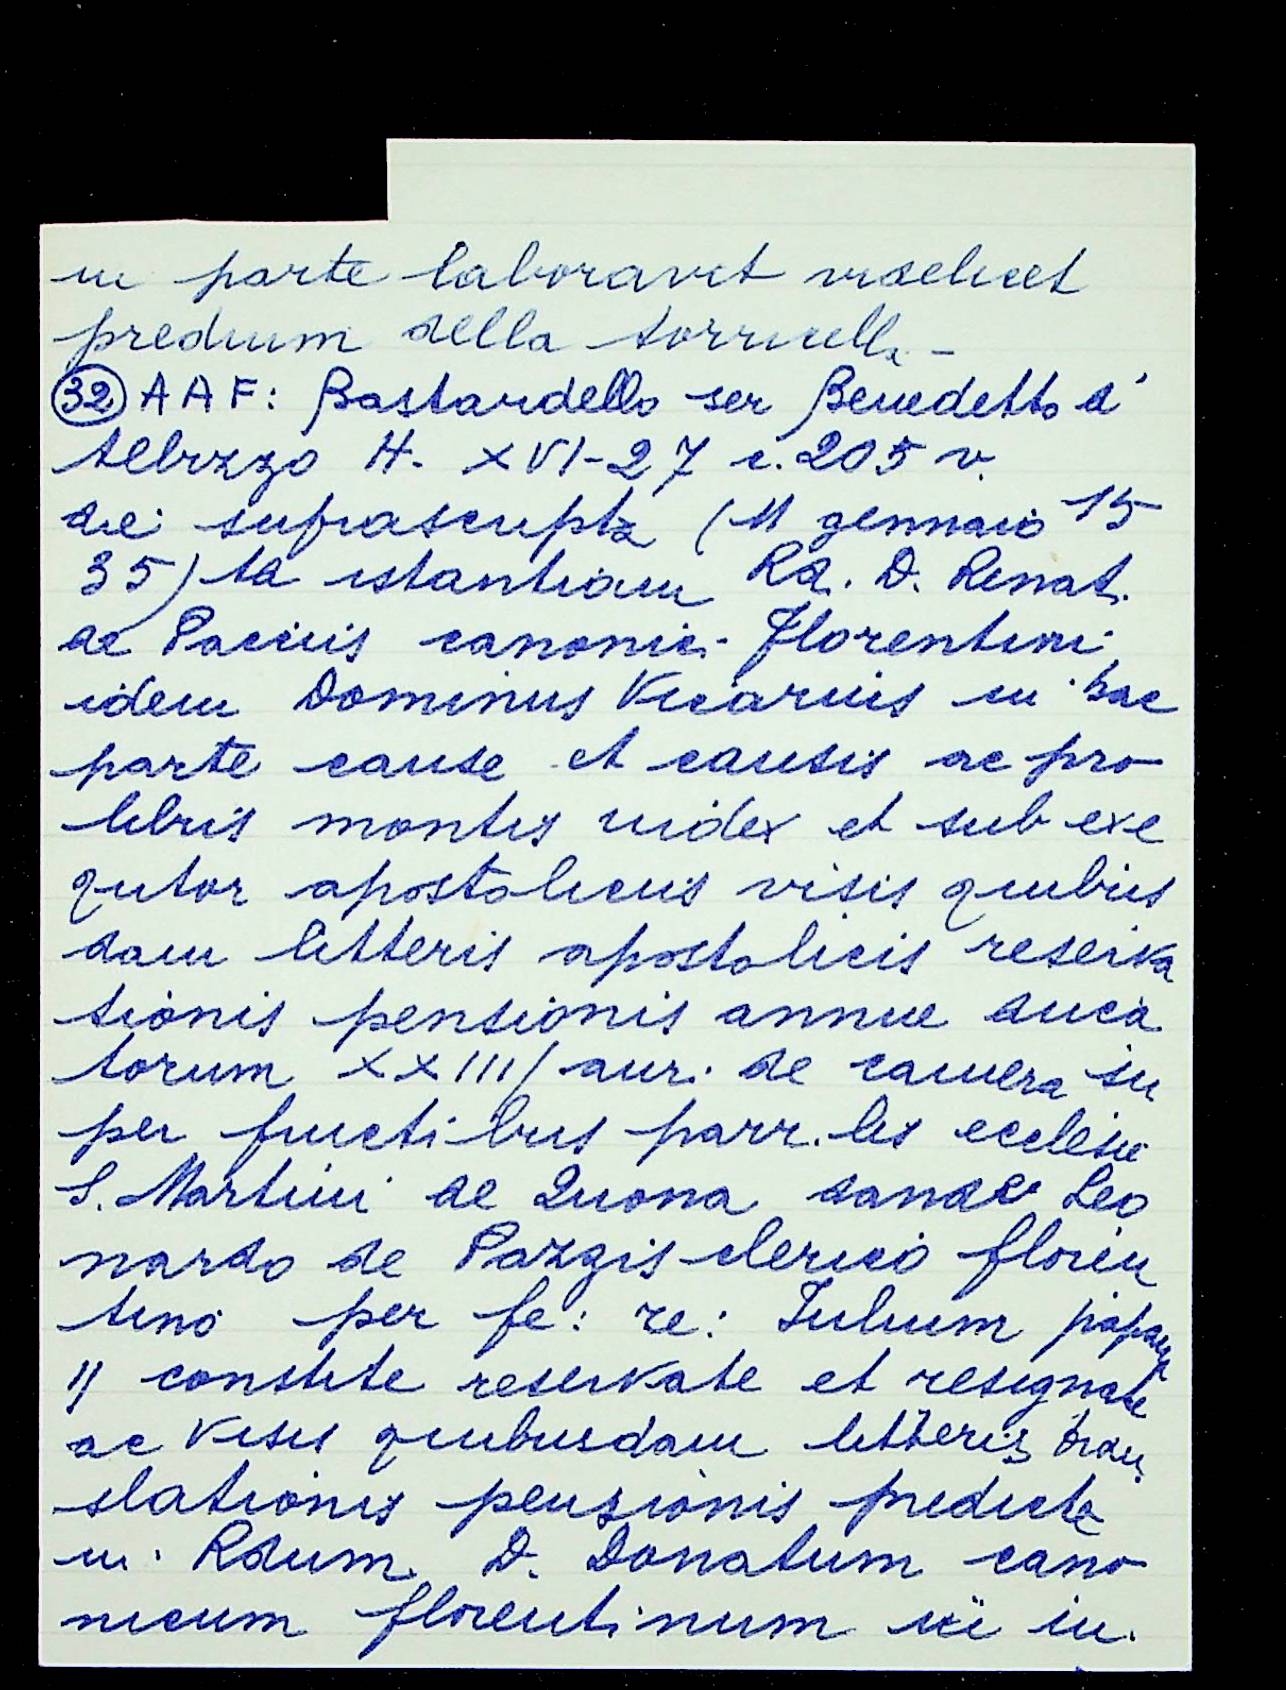 in parte laboravit videlicet
predium della torricella -
32 AAF: Bastardello ser Benedetto d'
Albizzo H. XVI-27 c. 205 v.
die suprascripta (11 gennaio 15
35) ta istantiam Rd. D. Renat.
de Pacciis canonici Florentini
idem Dominus Vicarius in hac
parte cause et causis ac pro
libris montis iudex et sub exe
qutor apostolicus visis quibus
dam litteris apostolicis reserva
tionis pensionis annue duca
torum XXIII/ auri de camera su
per fructibus parr.lis ecclesie
S. Martini de Quona dande Leo
nardo de Pazzis clerico floren
tino per fe: re: Iulium papam
II constite reservate et resignate
ac visis quibusdam litteris tran
slationis pensionis predicte
in Rdum D. Donatum cano
nicum florentinum in.